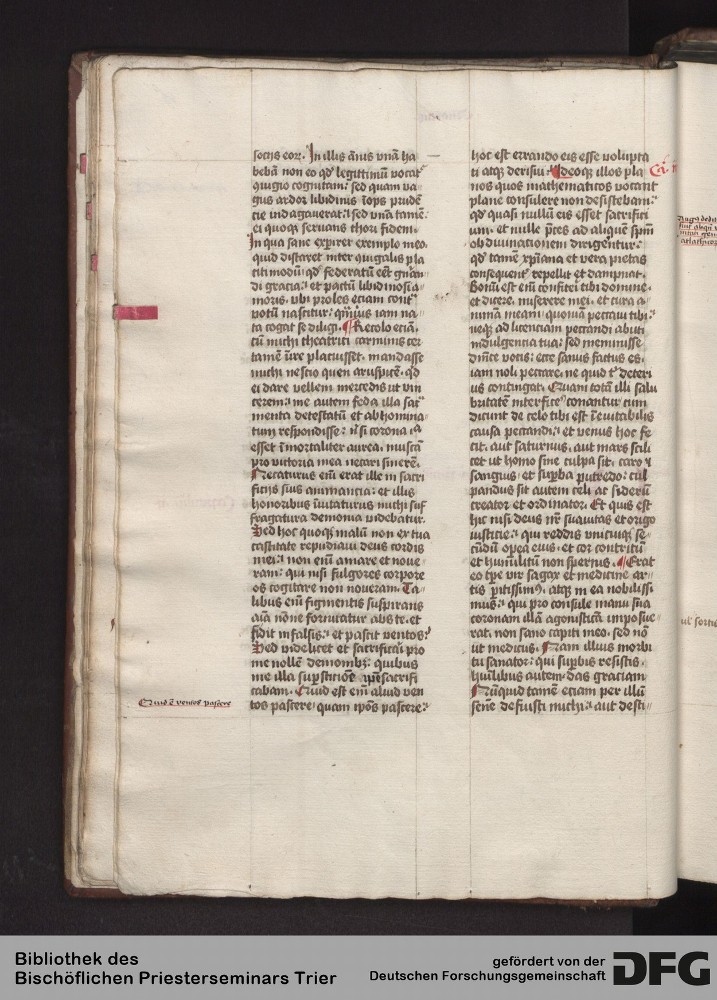 socijs eor. In illis ānis vnā ha
bebā non eo qd' legittimū vocat'
quigio cognitam: sed quam va
gus ardor libidinis iops prudē
cie indagauerat: sed vnā tamē
ei quoqꝫ seruans thori fidem.
In qua sane expirer exemplo meo
quid distaret inter giugalis pla
citi modū: qd' federatū eēt gn̄an
di gracia: et pactū libidinosi a
moris. vbi proles eciam cont̄
votū nascitur: qmuis iam na
ta cogat se diligi. Recolo eciā.
cū michi theatrici carminis cer
tamē īire placuisset. mandasse
michi nescio quen aruspicē. qd
ei dare vellem mercedis ut vin
cerem: me autem feda illa sac
menta detestatū et abhomina
tum respondisse: n̄ si corona ia
esset īmortaliter aurea. muscā
pro victoria mea necari sinerē.
Necaturus eīn erat ille in sacri
ficijs suis animancia: et illis
honoribus īuitaturus michi suf
fragatura demonia videbatur.
Sed hoc quoqꝫ malū non ex tua
castitate repudiaui deus cordis
mei: non eīn amare te noue
ram: qui nisi fulgores corpore
os cogitare non noueram. Ta
libus eīn figmentis suspirans
aīa nōne fornicatur abs te. et
fidit in falsis: et pascit ventos:
Sed videlicet et sacrificari pro
me nollē demonibꝫ: quibus
me illa supsticiōe ipse sacrifi
cabam. Quid est eīn aliud ven
tos pascere: quam ipōs pascere:
Quid ē ventos pascere
hoc est errando eis esse volupta
ti atqꝫ derisui: Ideoqꝫ illos pla
nos quos mathematicos vocant
plane consulere non desistebam:
qd' quasi nullū eis esset sacrifici
um. et nulle p̄ces ad aliquē sp̄m
ob diuinacionem dirigentur:
qd' tamē xp̄iana et vera pietas
consequent' repellit et dampnat.
Bonū est eīn confiteri tibi domine.
et dicere. miserere mei. et cura a
nimā meam. quoniā peccaui tibi.
neqꝫ ad licenciam peccandi abuti
indulgencia tua: sed meminisse
dn̄ice vocis: ecce sanus factus es.
iam noli peccare. ne quid t' deteri
us contingat. Quam totā illi salu
britatē interficē conantur cum
dicunt de celo tibi est īeuitabilis
causa peccandi: et venus hoc fe
cit. aut saturnus. aut mars scili
cet ut homo sine culpa sit. caro
sanguis et supba putredo: cul
pandus sit autem celi ac siderū
creator et ordinator. Et quis est
hic nisi deus nr̄ suauitas et origo
iusticie: qui reddis vnicuiqꝫ se
cūdū opera eius. et cor contritū
et humiliatū non spernis. Erat
eo tp̄e vir sagax et medicine ar
tis p̄itissimꝰ. atqꝫ in ea nobilissi
mus: qui pro consule manu sua
coronam illā agonisticā imposue
rat. non sano capiti meo. sed nō
ut medicus. Nam illius morbi
tu sanator: qui supbis resistis.
humilibus autem das graciam
Nūquid tamē eciam per illū
senē defuisti michi: aut desti
Bibliothek des
Bischöflichen Priesterseminars Trier
gefördert von der
Deutschen Forschungsgemeinschaft
DFG